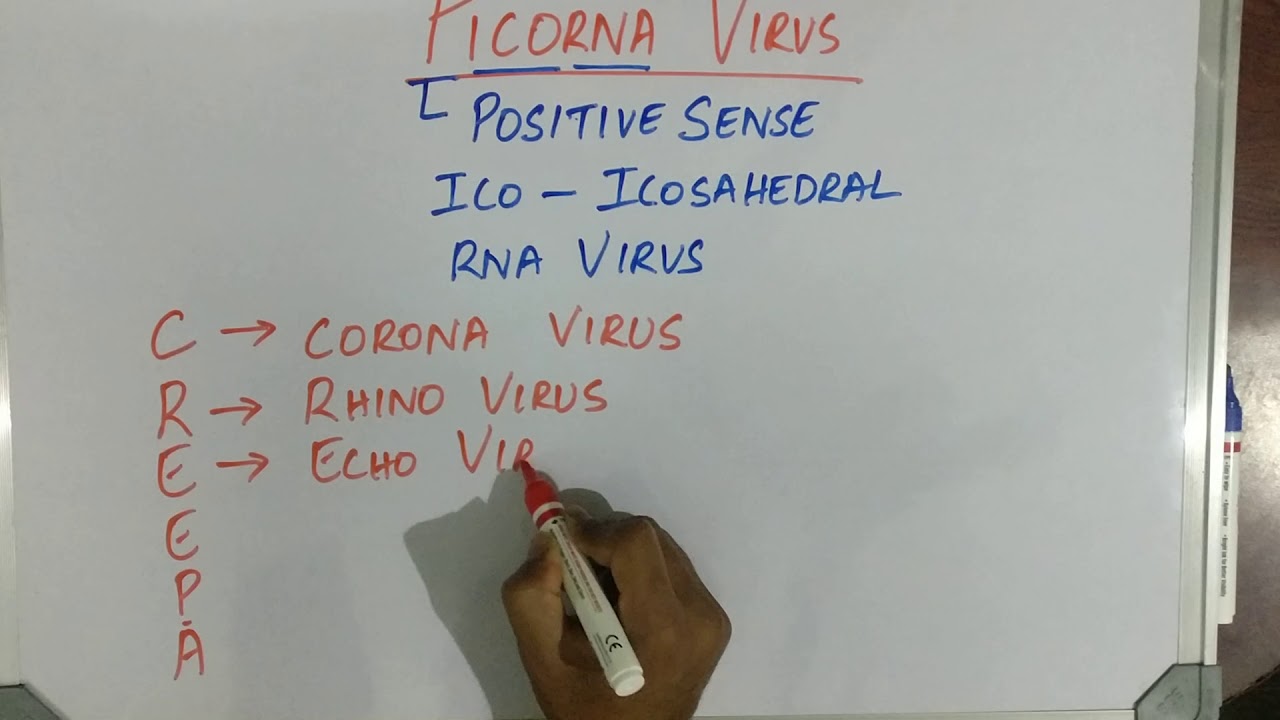 PICORNA VIRUS
[ POSITIVE SENSE
ICO - ICOSAHEDRAL
RNA VIRUS
C → CORONA VIRUS
R → RHINO VIRUS
E → ECHO VIR
E
P
A
CE